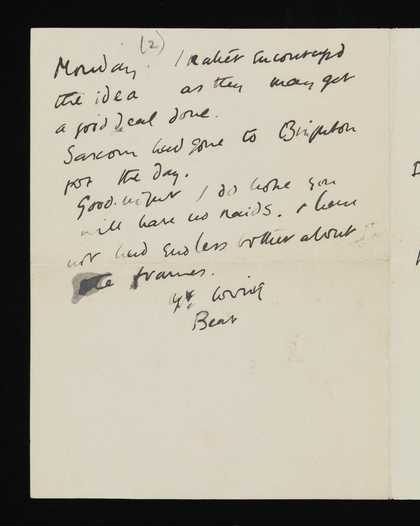 (2)
Monday. I rather encouraged
the idea as they may get
a good deal done.
had gone to Brighton
for the day.
Good.night I do hope you
will have no raids. & have
not had endless bother about
the frames.
Yr loving
Bear